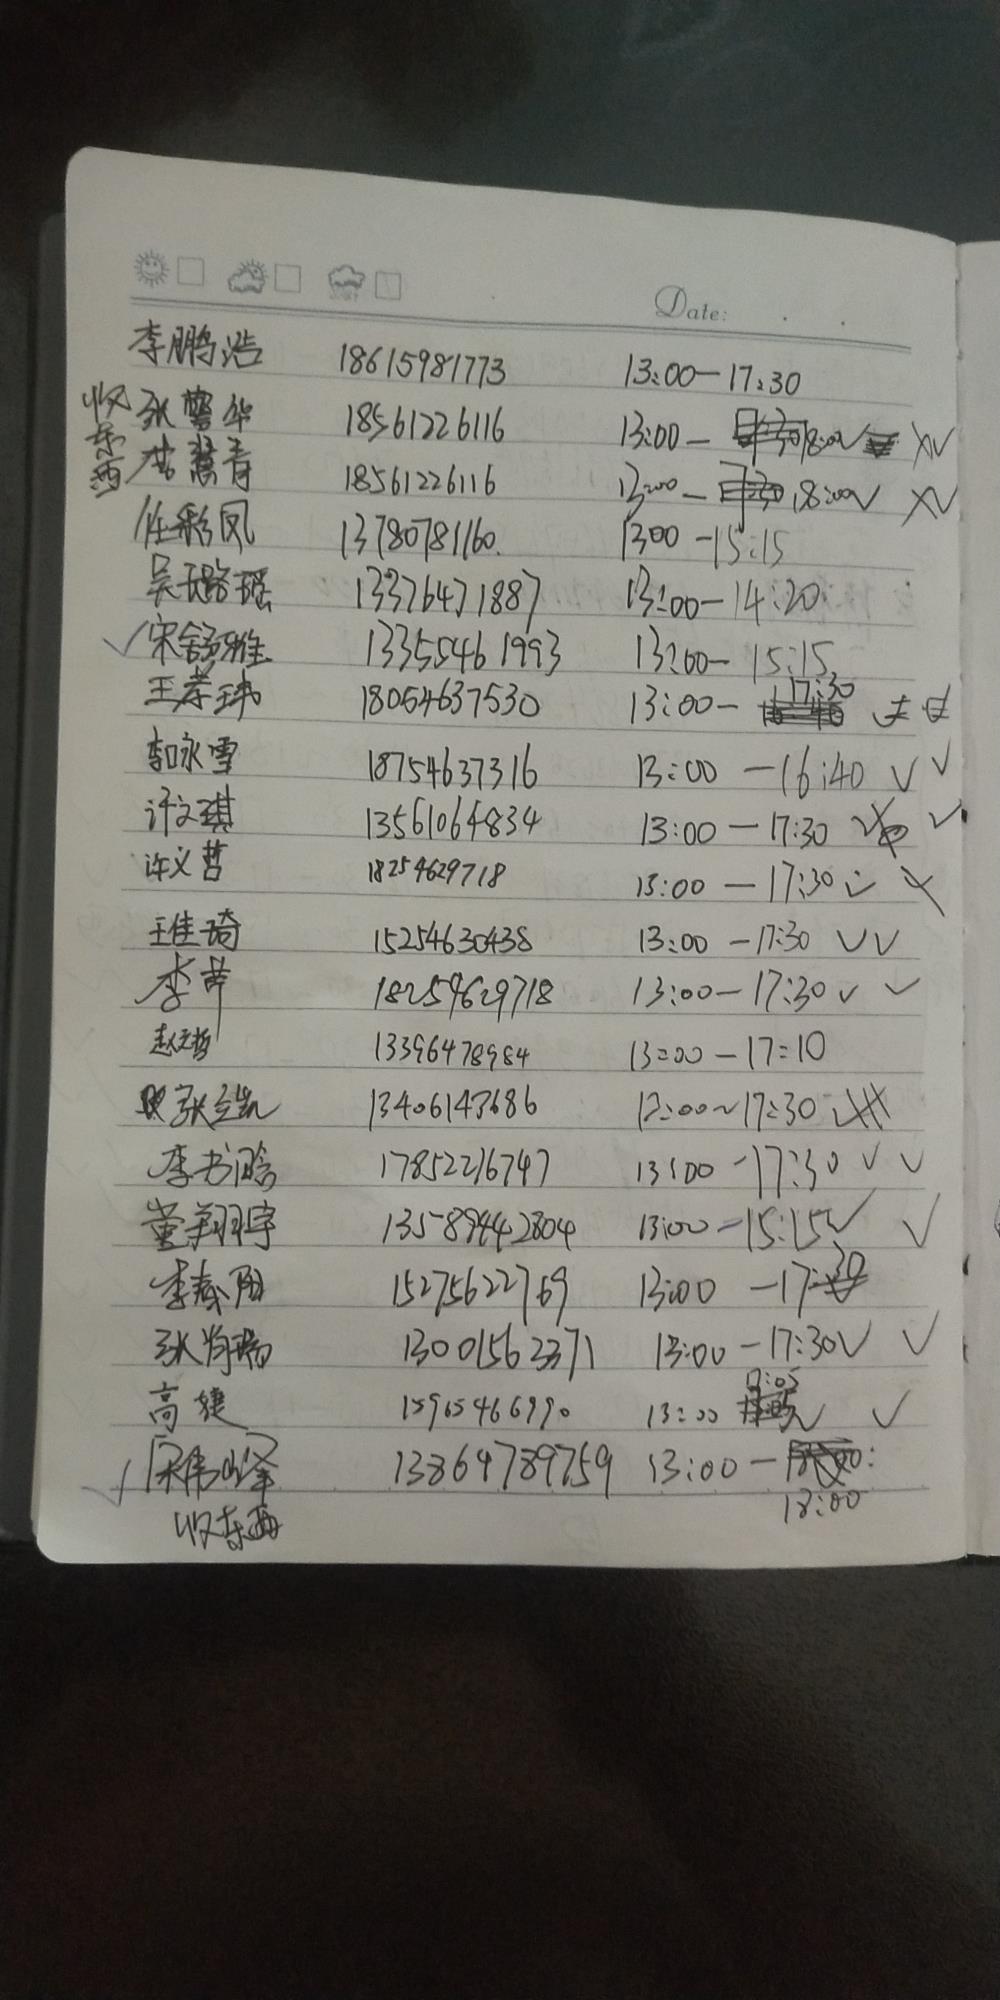 Date:
李鹏浩 18615981773 13:00-17:30
收东西 张馨华 18561226116 13:00- 18:00
慧青 18561226116 13:00- 18:00
任彩凤 13780781160. 1300-15:15
吴璐瑶 13376471887 13:00-14:20
宋舒雅 13355461993 13:00-15:15
王孝玮 18054637530 13:00- 17:30
永雪 18754637316 13:00-16:40
许文琪 13561064834 13:00-17:30
许义哲 18254629718 13:00-17:30
王佳琦 15254630438 13:00-17:30
李芾 18254629718 13:00-17:30
赵文哲 13396478984 13:00-17:10
张 13406143686 13:00~17:30
李书晗 17852216747 13:00-17:30
董翔宇 13589442804 13:00-15:15
李春阳 15275622769 13:00-17:30
张 13001562371 13:00-17:30
高婕 15965466990 13:00 17:05
宋伟峰 13864789759 13:00- 18:00
收东西